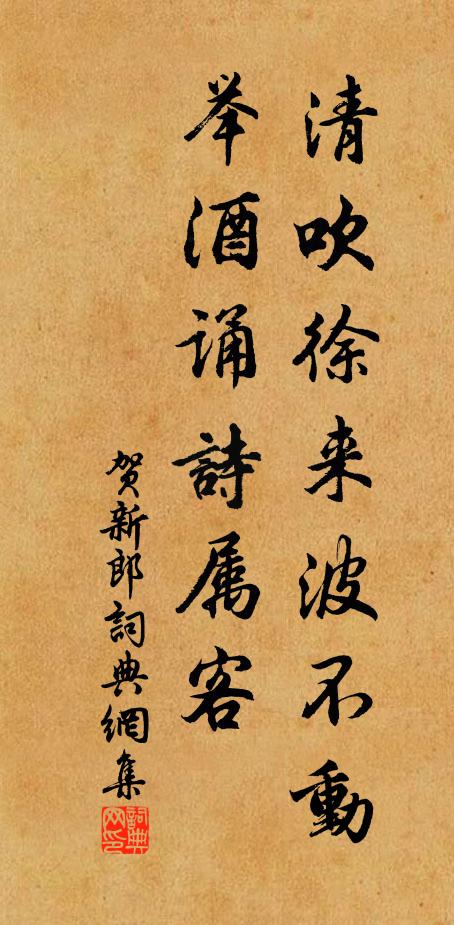 清吹徐来波不動
举酒诵詩属客
贺新郎詞典網集
詞典网印